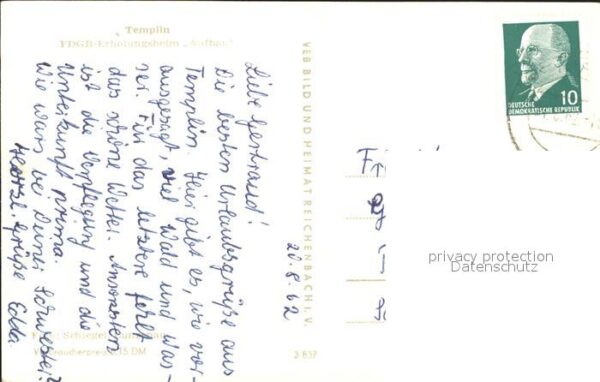 Templin
FDGB-Erholungsheim „Aufbau"
20.8.62
Liebe Gertraud!
Die besten Urlaubsgrüße aus
Templin. Hier gibt es, wie vor-
ausgesagt, viel Wald und Was-
ser. Für das letztere fehlt
das schöne Wetter. Ansonsten
ist die Verpflegung und die
Unterkunft prima.
Wie wars bei Deiner Schwester?
Herzl. Grüße Edda.
Foto: Schlegel,
Verbraucherpreis 0,15 DM
VEB BILD UND HEIMAT REICHENBACH I. V.
3 837
10
DEUTSCHE
DEMOKRATISCHE REPUBLIK
privacy protection
Datenschutz